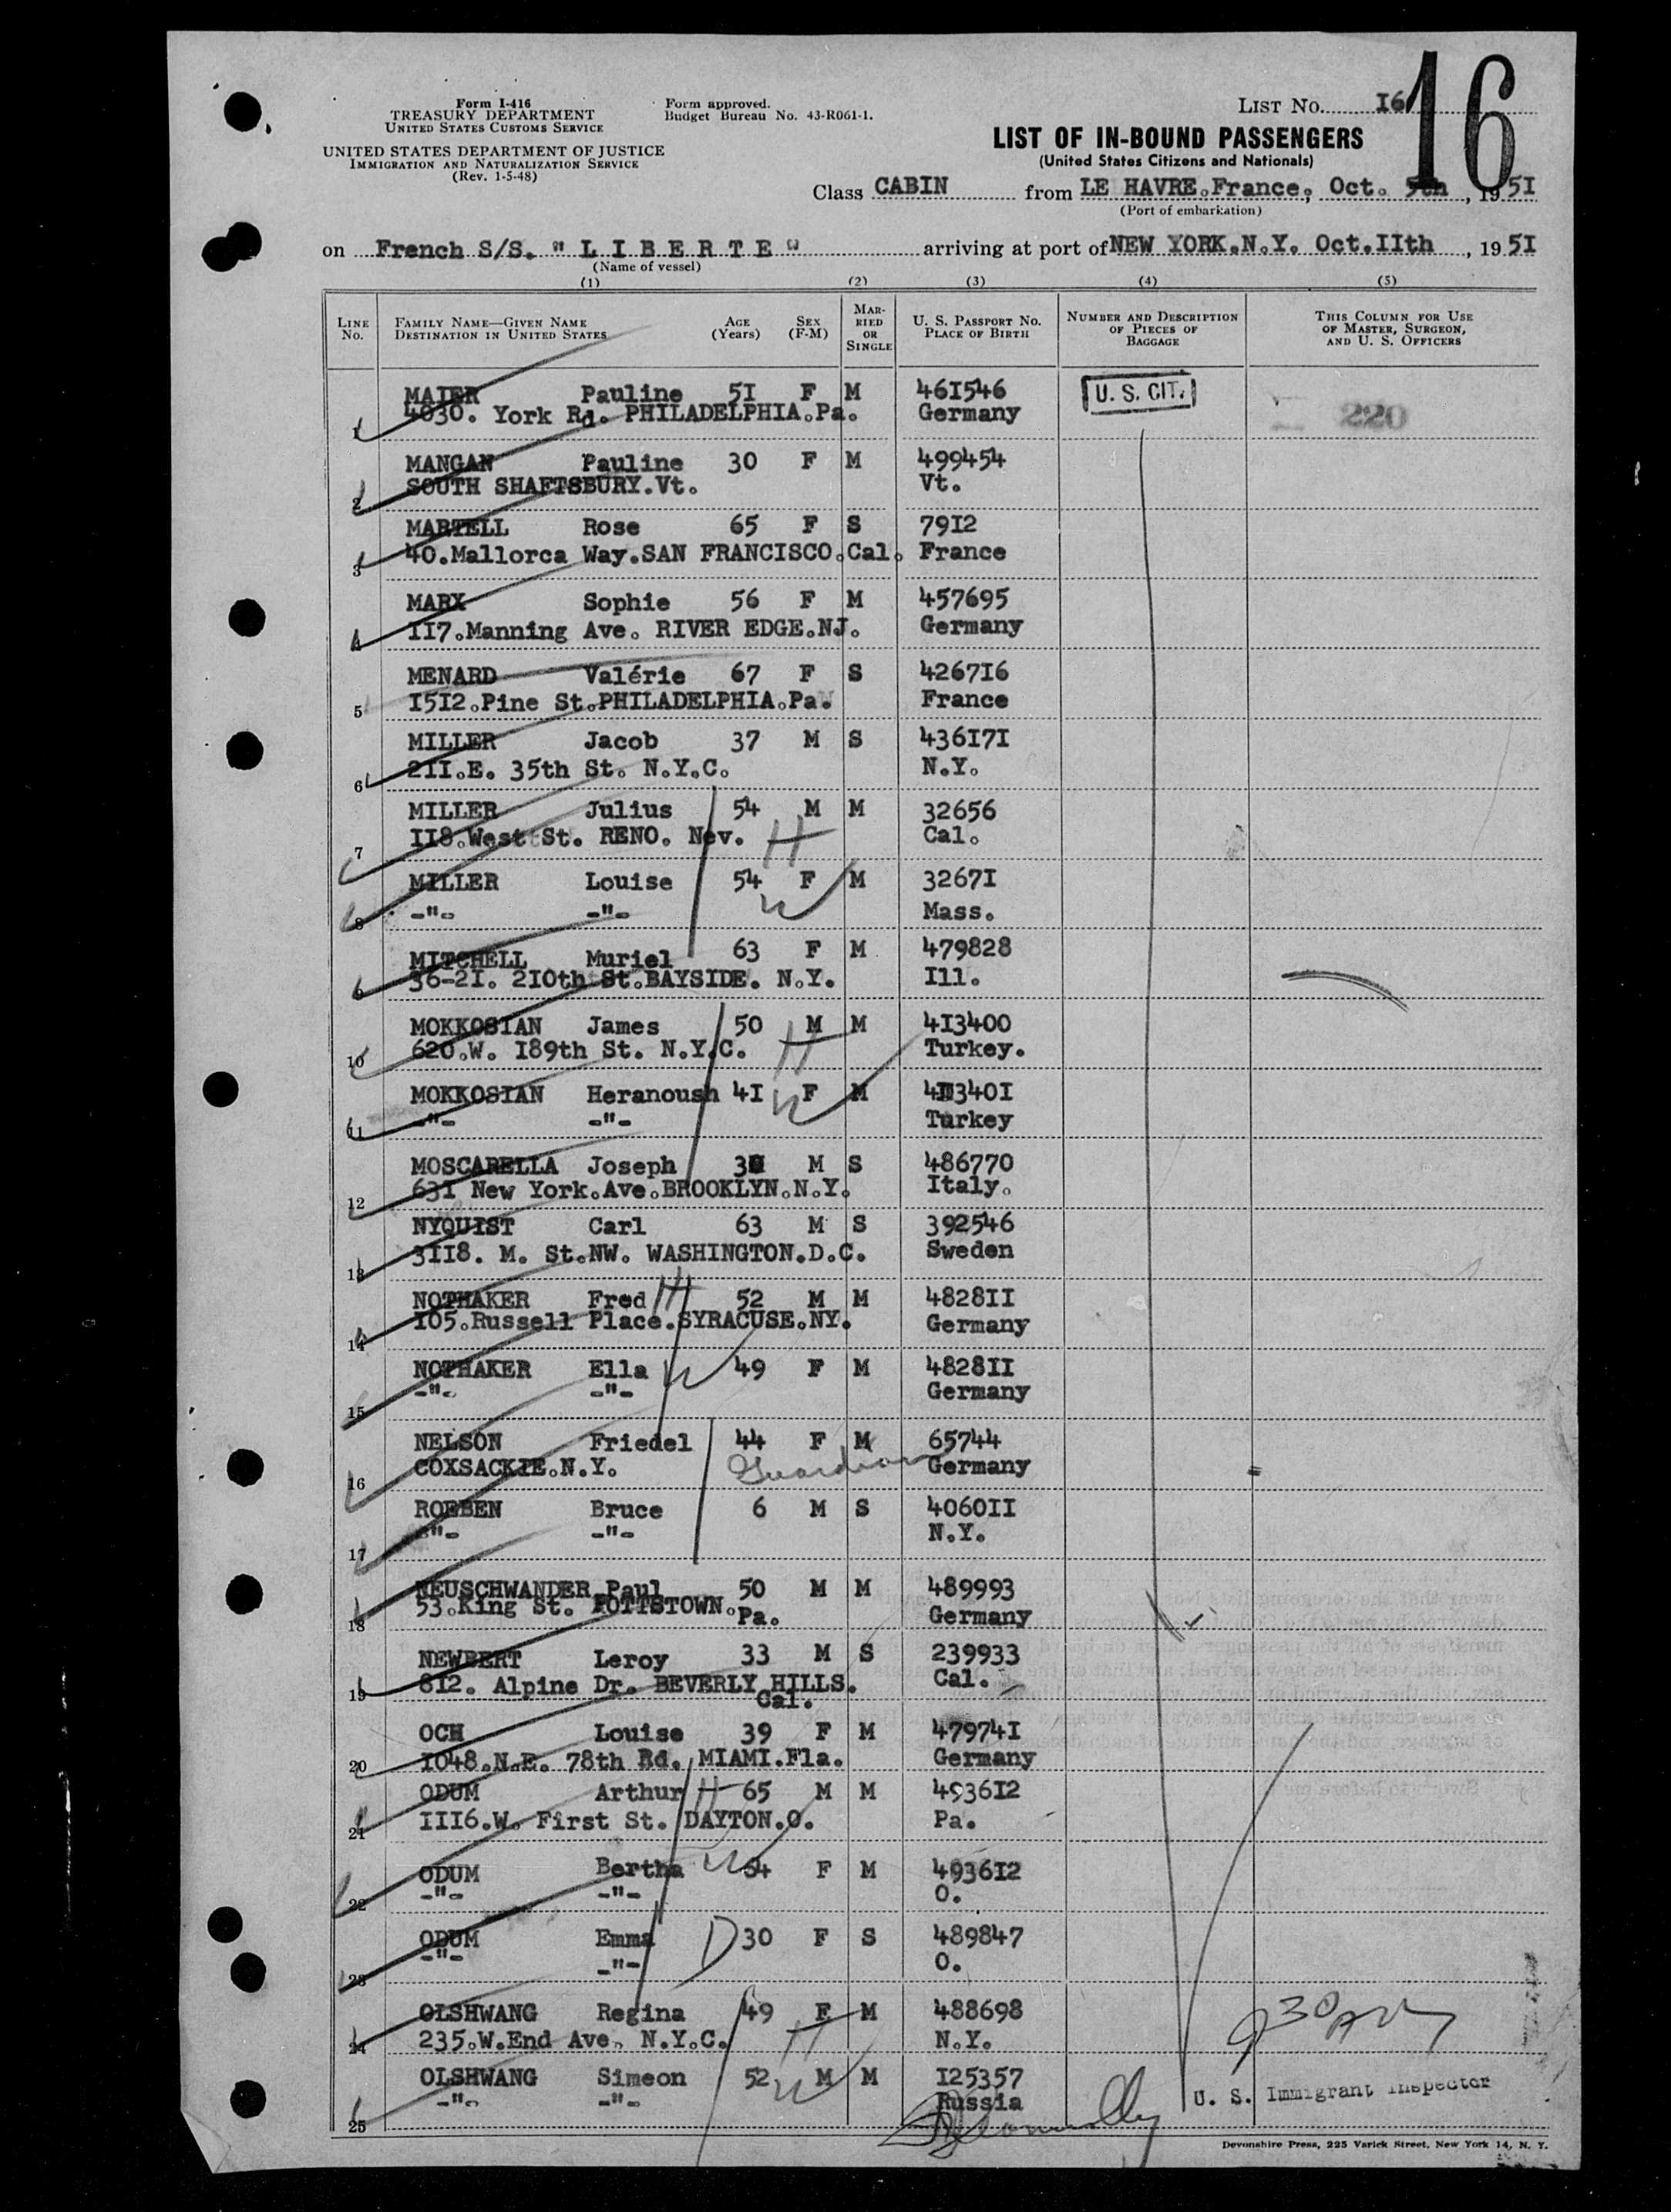 Form I-416
TREASURY DEPARTMENT
UNITED STATES CUSTOMS SERVICE
UNITED STATES DEPARTMENT OF JUSTICE
IMMIGRATION AND NATURALIZATION SERVICE
(Rev. 1-5-48)
Form approved.
Budget Bureau No. 43-R061-1.
LIST NO. I6
16
LIST OF IN-BOUND PASSENGERS
(United States Citizens and Nationals)
Class CABIN from LE HAVRE.France, Oct. 5th, 1951
(Port of embarkation)
on French S/S. " L I B E R T E " arriving at port of NEW YORK.N.Y. Oct.IIth, 1951
(Name of vessel)
(1) (2) (3) (4) (5)
LINE NO.
FAMILY NAME—GIVEN NAME
DESTINATION IN UNITED STATES
AGE (Years)
SEX (F-M)
MARRIED OR SINGLE
U. S. PASSPORT NO.
PLACE OF BIRTH
NUMBER AND DESCRIPTION OF PIECES OF BAGGAGE
THIS COLUMN FOR USE OF MASTER, SURGEON, AND U. S. OFFICERS
MAIER Pauline 5I F M 46I546 U. S. CIT.
1 4030. York Rd. PHILADELPHIA.Pa. Germany 220
MANGAN Pauline 30 F M 499454
2 SOUTH SHAFTSBURY.Vt. Vt.
MARTELL Rose 65 F S 79I2
3 40.Mallorca Way.SAN FRANCISCO.Cal. France
MARX Sophie 56 F M 457695
4 II7.Manning Ave. RIVER EDGE.NJ. Germany
MENARD Valérie 67 F S 4267I6
5 I5I2.Pine St.PHILADELPHIA.Pa. France
MILLER Jacob 37 M S 436I7I
6 2II.E. 35th St. N.Y.C. N.Y.
MILLER Julius 54 M M 32656
7 II8.West St. RENO. Nev. H Cal.
MILLER Louise 54 F M 3267I
8 -"- -"- W Mass.
MITCHELL Muriel 63 F M 479828
9 36-2I. 2I0th St.BAYSIDE. N.Y. Ill.
MOKKOSIAN James 50 M M 4I3400
10 620.W. I89th St. N.Y.C. H Turkey.
MOKKOSIAN Heranoush 4I F M 4I340I
11 -"- -"- W Turkey
MOSCARELLA Joseph M S 486770
12 63I New York.Ave.BROOKLYN.N.Y. Italy.
NYQUIST Carl 63 M S 392546
13 3II8. M. St.NW. WASHINGTON.D.C. Sweden
NOTHAKER Fred H 52 M M 4828II
14 I05.Russell Place.SYRACUSE.NY. Germany
NOTHAKER Ella W 49 F M 4828II
15 -"- -"- Germany
NELSON Friedel 44 F M 65744
16 COXSACKIE.N.Y. Guardian Germany
ROBBEN Bruce 6 M S 4060II
17 -"- -"- N.Y.
NEUSCHWANDER Paul 50 M M 489993
18 53.King St. POTTSTOWN.Pa. Germany
NEWBERT Leroy 33 M S 239933
19 8I2. Alpine Dr. BEVERLY HILLS. Cal. Cal.
OCH Louise 39 F M 47974I
20 I048.N.E. 78th Rd. MIAMI.Fla. Germany
ODUM Arthur H 65 M M 4936I2
21 III6.W. First St. DAYTON.O. Pa.
ODUM Bertha W 54 F M 4936I2
22 -"- -"- O.
ODUM Emma D 30 F S 489847
23 -"- -"- O.
OLSHWANG Regina 49 F M 488698
24 235.W.End Ave. N.Y.C. H N.Y.
OLSHWANG Simeon 52 W M M I25357
25 -"- -"- Russia
U. S. Immigrant Inspector
Devonshire Press, 225 Varick Street, New York 14, N. Y.